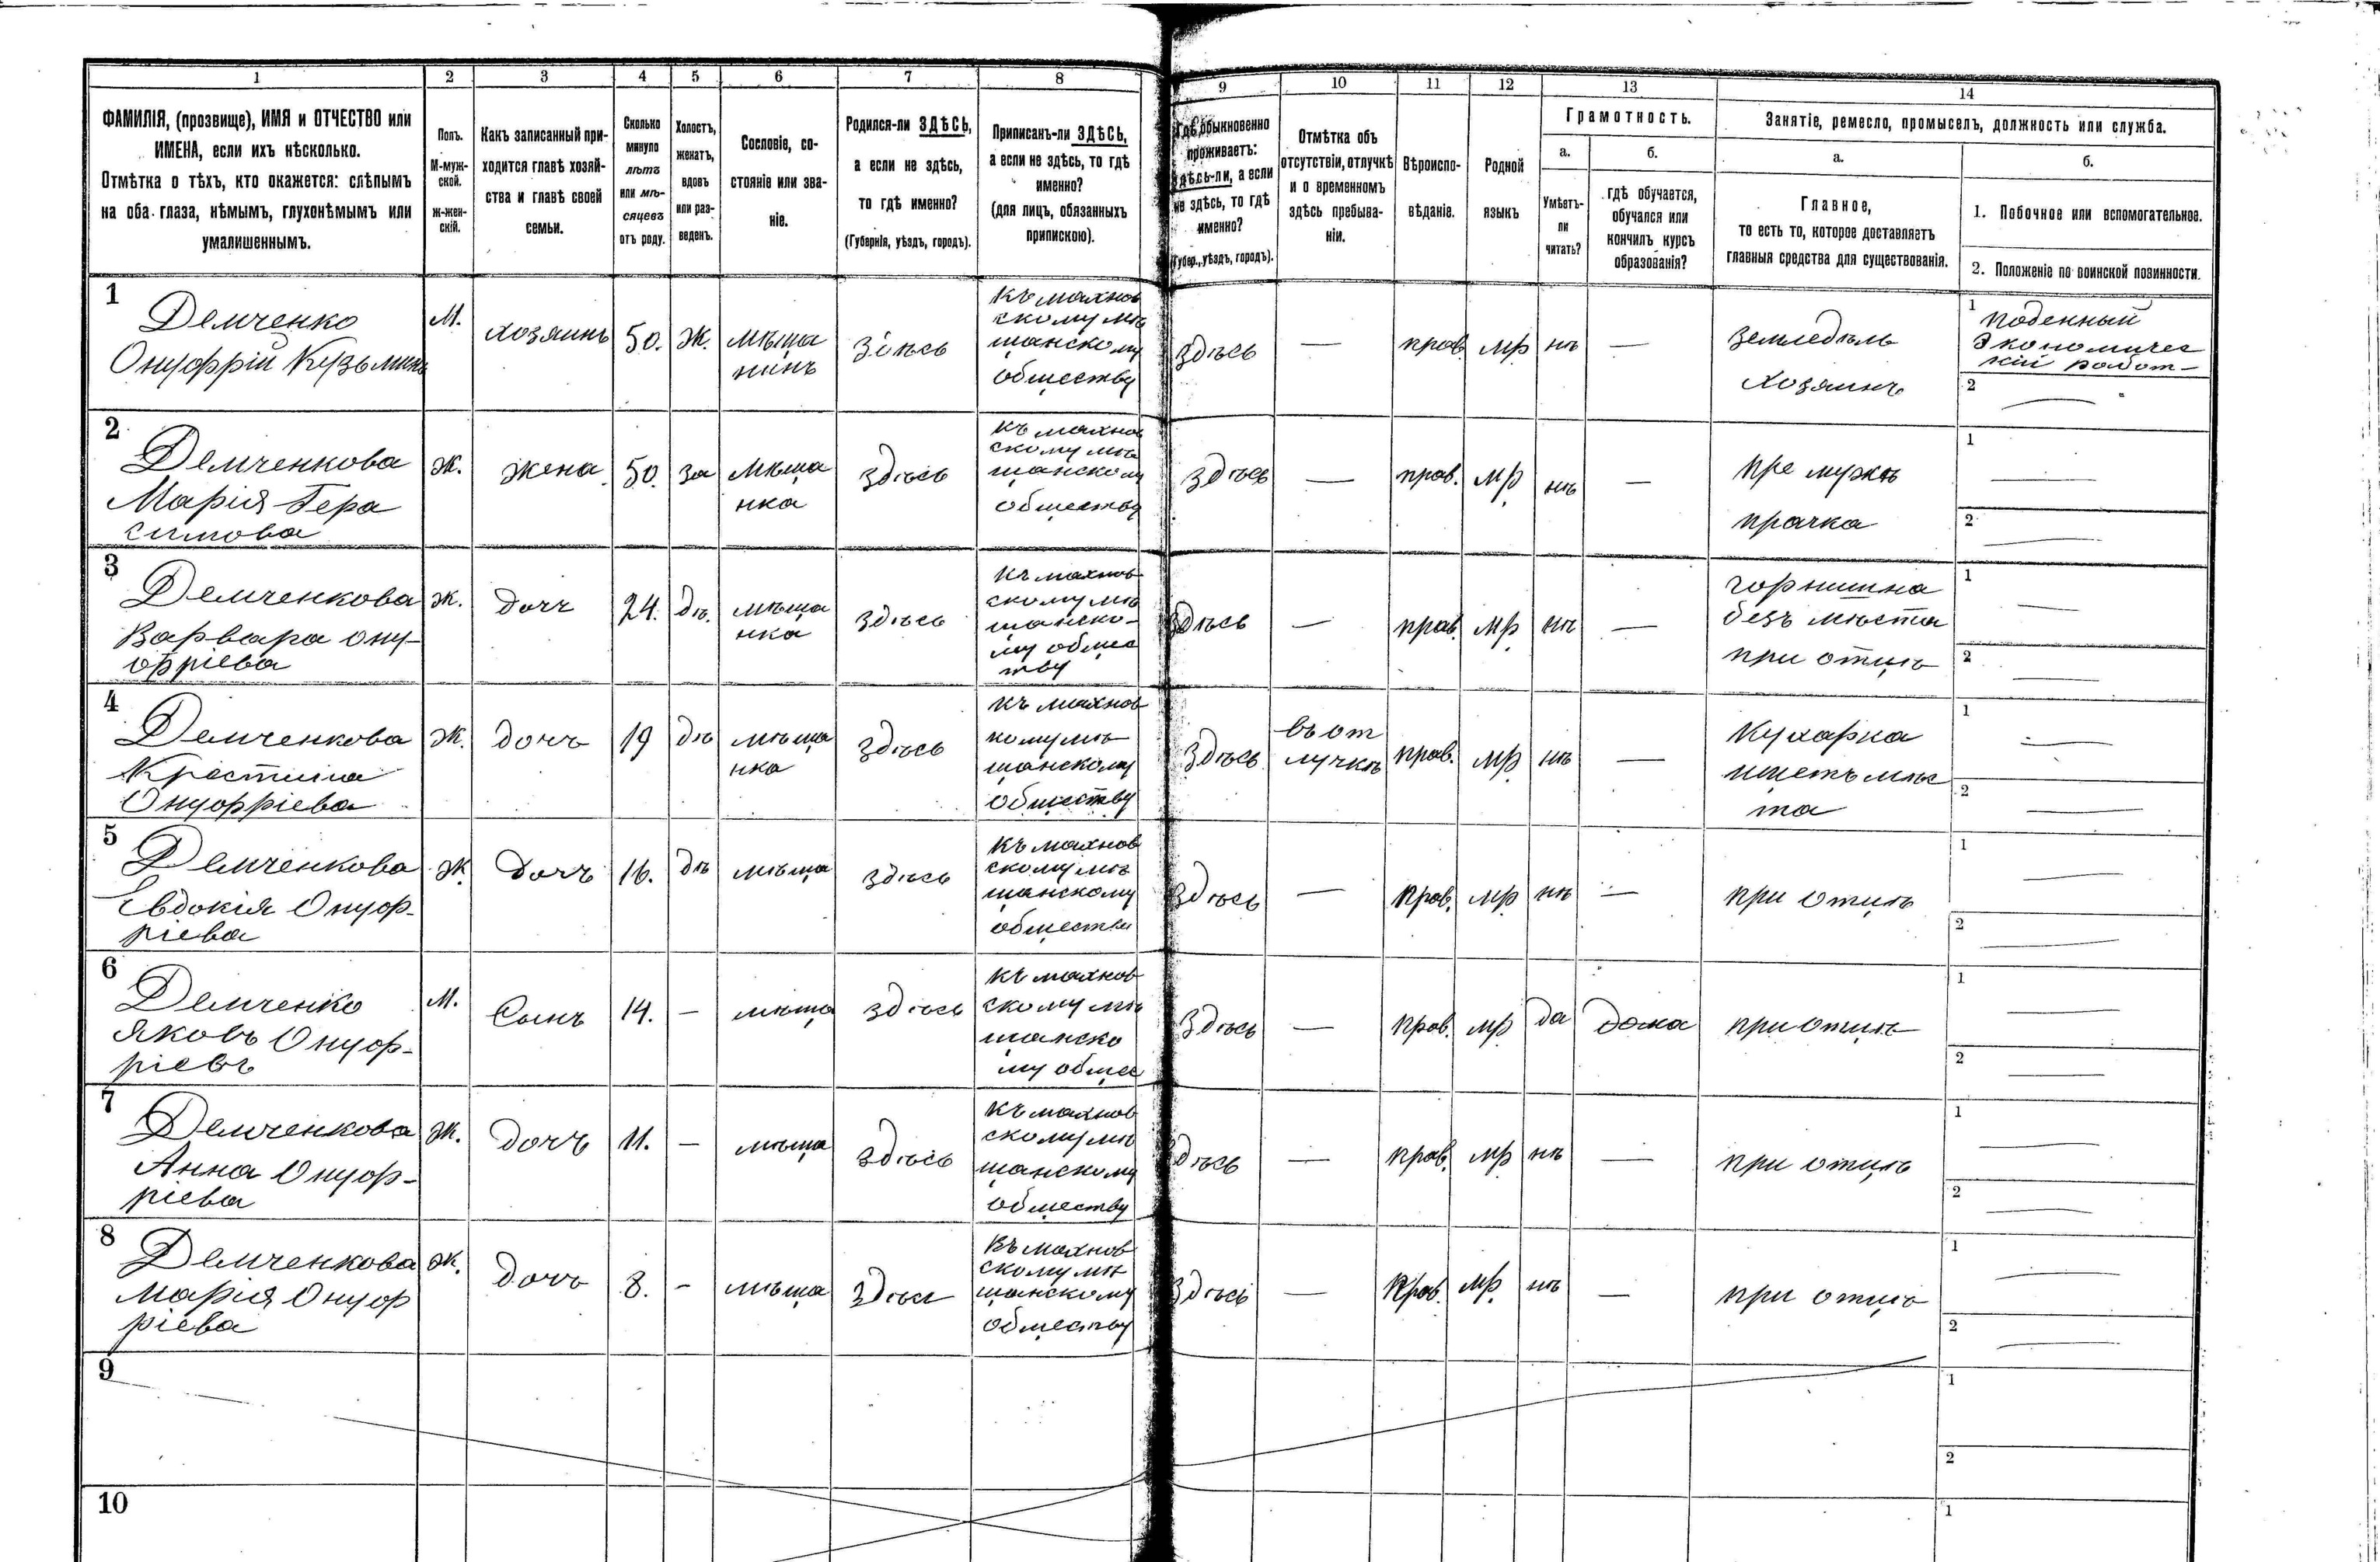 1 2 3 4 5 6 7 8 9 10 11 12 13 14
ФАМИЛІЯ, (прозвище), ИМЯ и ОТЧЕСТВО или
ИМЕНА, если ихъ нѣсколько.
Отмѣтка о тѣхъ, кто окажется: слѣпымъ
на оба глаза, нѣмымъ, глухонѣмымъ или
умалишеннымъ.
Полъ.
М-муж-
ской.
Ж-жен-
скій.
Какъ записанный при-
ходится главѣ хозяй-
ства и главѣ своей
семьи.
Сколько
минуло
лѣтъ
или мѣ-
сяцевъ
отъ роду.
Холостъ,
женатъ,
вдовъ
или раз-
веденъ.
Сословіе, со-
стояніе или зва-
ніе.
Родился-ли ЗДѢСЬ,
а если не здѣсь,
то гдѣ именно?
(Губернія, уѣздъ, городъ).
Приписанъ-ли ЗДѢСЬ,
а если не здѣсь, то гдѣ
именно?
(для лицъ, обязанныхъ
припискою).
Гдѣ обыкновенно
проживаетъ:
здѣсь-ли, а если
не здѣсь, то гдѣ
именно?
(Губер., уѣздъ, городъ).
Отмѣтка объ
отсутствіи, отлучкѣ
и о временномъ
здѣсь пребыва-
ніи.
Вѣроиспо-
вѣданіе.
Родной
языкъ
Грамотность.
а.
Умѣетъ-
ли
читать?
б.
гдѣ обучается,
обучался или
кончилъ курсъ
образованія?
Занятіе, ремесло, промыселъ, должность или служба.
а.
Главное,
то есть то, которое доставляетъ
главныя средства для существованія.
б.
1. Побочное или вспомогательное.
2. Положеніе по воинской повинности.
1
Демченко
Онуфрій Кузьминъ
М.
хозяинъ
50.
Ж.
мѣща
нинъ
здѣсь
Къ махнов
скому мѣ
щанскому
обществу
здѣсь
—
прав.
мр
нѣ
—
земледѣль
хозяинъ
1
поденный
экономичес
кій работ-
2
—
2
Демченкова
Марія Гера
симова
Ж.
жена
50.
за
мѣща
нка
здѣсь
Къ махнов
скому мѣ
щанскому
обществу
здѣсь
—
прав.
мр
нѣ
—
пре мужѣ
прачка
1
—
2
—
3
Демченкова
Варвара Ону-
фріева
Ж.
дочь
24.
дѣ.
мѣща
нка
здѣсь
Къ махнов
скому мѣ
щанско-
му общес
тву
здѣсь
—
прав.
мр
нѣ
—
горнишна
безъ мѣста
при отцѣ
1
—
2
—
4
Демченкова
Крестина
Онуфріева
Ж.
дочь
19
дѣ
мѣща
нка
здѣсь
Къ махнов
кому мѣ
щанскому
обществу
здѣсь
въ от
лучкѣ
прав.
мр
нѣ
—
Кухарка
ищетъ мѣс
та
1
—
2
—
5
Демченкова
Евдокія Онуф-
ріева
Ж
дочь
16.
дѣ
мѣща
здѣсь
Къ махнов
скому мѣ
щанскому
обществу
здѣсь
—
прав.
мр
нѣ
—
при отцѣ
1
—
2
—
6
Демченко
Яковъ Онуф-
ріевъ
М.
Сынъ
14.
-
мѣща
здѣсь
Къ махнов
скому мѣ
щанско
му общес
здѣсь
—
прав.
мр
да
дома
при отцѣ
1
—
2
—
7
Демченкова
Анна Онуф-
ріева
Ж.
дочь
11.
-
мѣща
здѣсь
Къ махнов
скому мѣ
щанскому
обществу
здѣсь
—
прав.
мр
нѣ
—
при отцѣ
1
—
2
—
8
Демченкова
Марія Онуф
ріева
Ж.
дочь
8.
-
мѣща
здѣсь
Къ махнов
скому мѣ
щанскому
обществу
здѣсь
—
прав.
мр
нѣ
—
при отцѣ
1
—
2
—
9
1
2
10
1